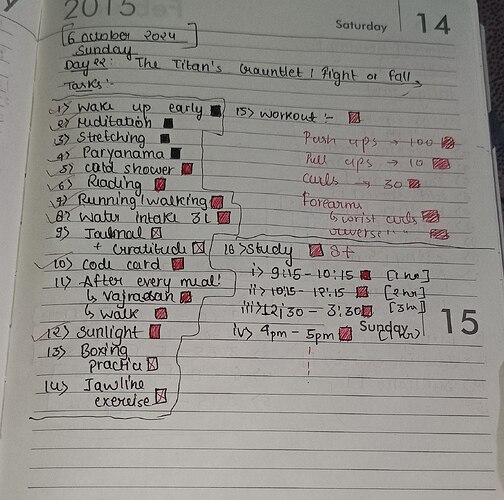 2015
Saturday 14
[6 october 2024]
Sunday
Day 22: The Titan's Gauntlet / Fight or fall
Tasks:-
1> Wake up early
2> Meditation
3> Stretching
4> Paryanama
5> cold shower
6> Reading
7> Running/walking
8> Water intake 3L
9> Journal
+ Gratitude
10> code card
11> After every meal!
↳ Vajrasan
↳ walk
12> Sunlight
13> Boxing
practice
14> Jawline
exercise
15> Workout :-
Push ups → 100
Pull ups → 10
curls → 30
Forearms
↳ wrist curls
reverse " "
16> Study 8+
i> 9:15 - 10:15 [1 hr]
ii> 10:15 - 12:15 [2 hr]
iii> 12:30 - 3:30 [3 hr]
iv> 4pm - 5pm [1 hr]
Sunday 15